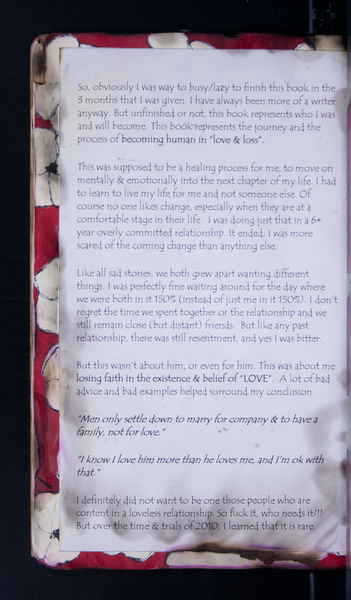 So, obviously I was way to busy/lazy to finish this book in the
3 months that I was given. I have always been more of a writer
anyway. But unfinished or not, this book represents who I was
and will become. This book represents the journey and the
process of becoming human in "love & loss".
This was supposed to be a healing process for me, to move on
mentally & emotionally into the next chapter of my life. I had
to learn to live my life for me and not someone else. Of
course no one likes change, especially when they are at a
comfortable stage in their life. I was doing just that in a 6+
year overly committed relationship. It ended; I was more
scared of the coming change than anything else.
Like all sad stories, we both grew apart wanting different
things. I was perfectly fine waiting around for the day where
we were both in it 150% (instead of just me in it 150%). I don't
regret the time we spent together or the relationship and we
still remain close (but distant) friends. But like any past
relationship, there was still resentment, and yes I was bitter.
But this wasn't about him, or even for him. This was about me
losing faith in the existence & belief of "LOVE". A lot of bad
advice and bad examples helped surround my conclusion.
"Men only settle down to marry for company & to have a
family, not for love."
"I know I love him more than he loves me, and I'm ok with
that."
I definitely did not want to be one those people who are
content in a loveless relationship. So fuck it, who needs it?!!
But over the time & trials of 2010, I learned that it is rare,